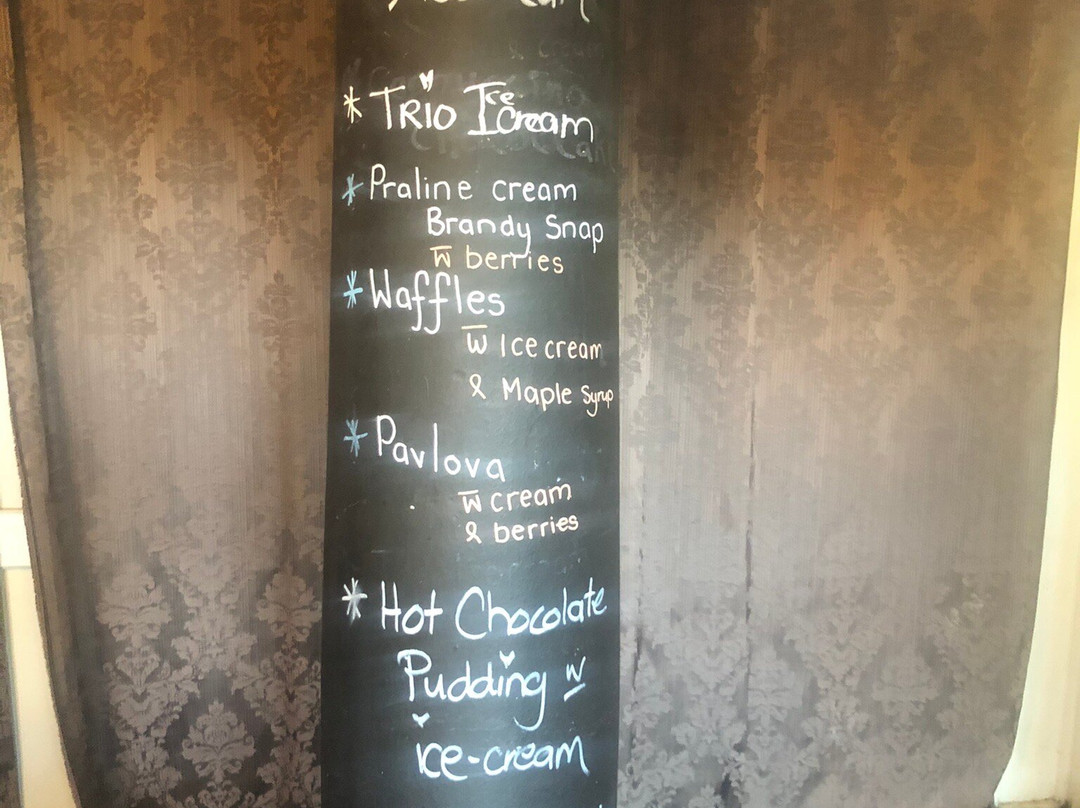 * TRIO Ice cream
* Praline cream
Brandy Snap
w̅ berries
* Waffles
w̅ Ice cream
& Maple Syrup
* Pavlova
w̅ cream
& berries
* Hot Chocolate
Pudding w
ice-cream